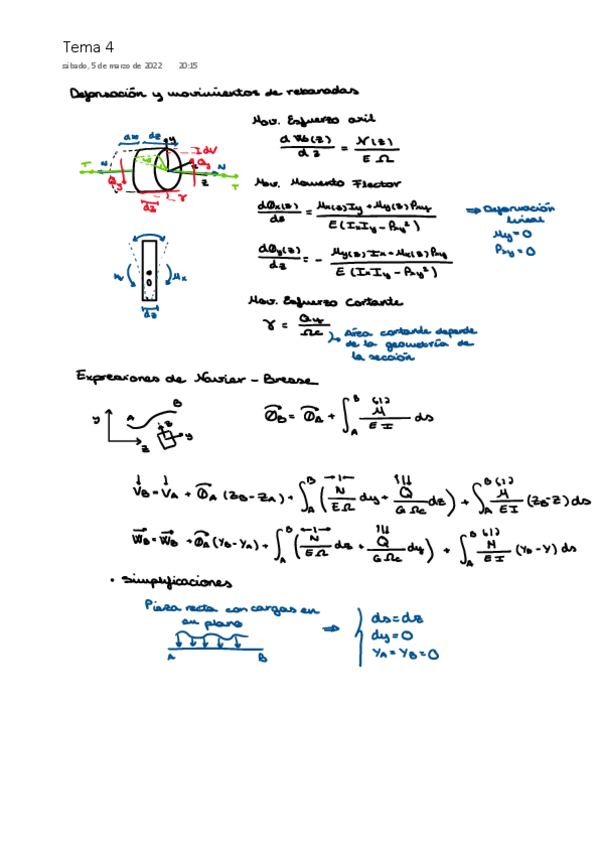 Tema 4
sábado, 5 de marzo de 2022 20:15
Deformación y movimientos de rebanadas
Mov. Esfuerzo axil
d Wb(z) / dz = N(z) / EΩ
Mov. Momento Flector
dθx(z) / dz = Mx(z)Iy + My(z)Pxy / E(IxIy - Pxy²)
⇒ Deformación lineal
My=0
Pxy=0
dθy(z) / dz = - My(z)Ix - Mx(z)Pxy / E(IxIy - Pxy²)
Mov. Esfuerzo Cortante
γ = Qy / Ωc
Área cortante depende
de la geometría de
la sección
dz y dV
T N Qy N T
z
dz γ
Mx
dz
Expresiones de Navier - Bresse
y A B z
θB = θA + ∫A^B M / EI ds
VB = VA + θA (zB - zA) + ∫A^B (N / EΩ dy + Q / GΩc dz) + ∫A^B M / EI (zB - z) ds
WB = WB + θA (YB - YA) + ∫A^B (N / EΩ dz + Q / GΩc dy) + ∫A^B N / EI (YB - Y) ds
• Simplificaciones
Pieza recta con cargas en
su plano
A B
⇒
ds = dz
dy = 0
YA = YB = 0